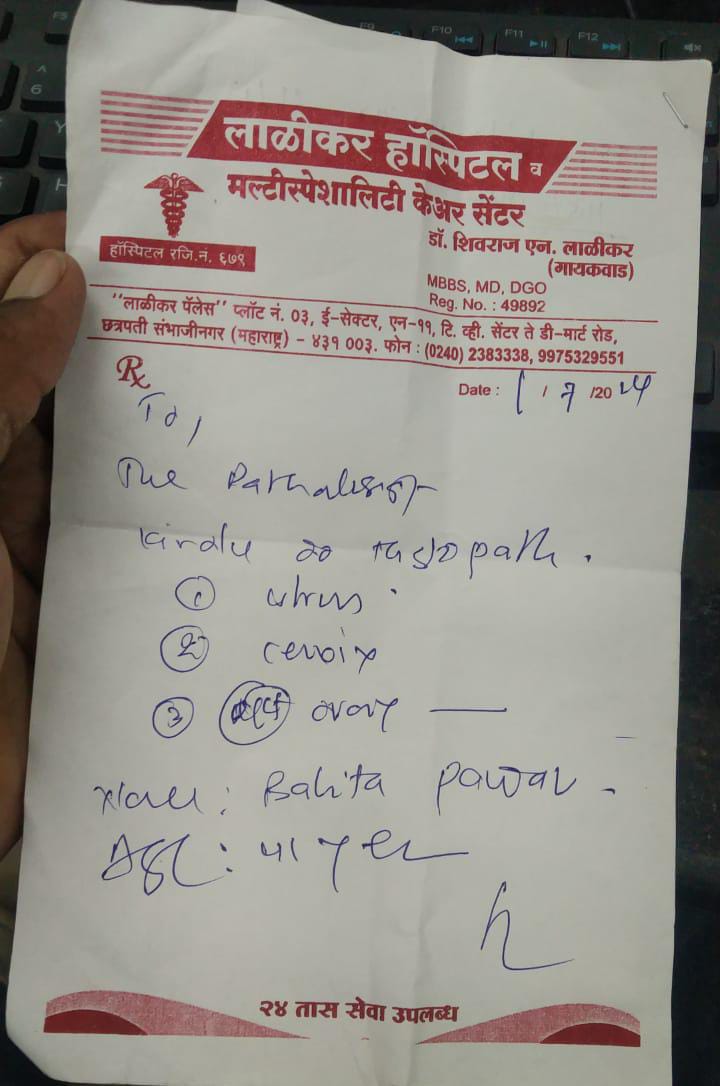 लाळीकर हॉस्पिटल व
मल्टीस्पेशालिटी केअर सेंटर
हॉस्पिटल रजि.नं. ६७९
डॉ. शिवराज एन. लाळीकर
(गायकवाड)
MBBS, MD, DGO
Reg. No. : 49892
"लाळीकर पॅलेस" प्लॉट नं. 03, ई-सेक्टर, एन-११, टि. व्ही. सेंटर ते डी-मार्ट रोड,
छत्रपती संभाजीनगर (महाराष्ट्र) - ४३१ 00३. फोन : (0240) 2383338, 9975329551
Rx
Date : 1 / 7 /20 24
To,
The Pathologist
Kindly do histopath.
① uterus.
② cervix
③ ovary —
Name : Babita Pawar.
Age :
२४ तास सेवा उपलब्ध